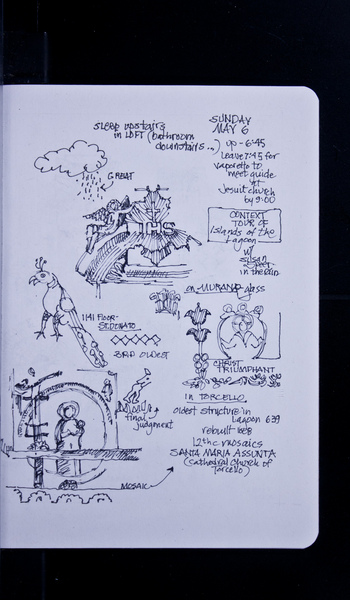 SUNDAY
MAY 6
sleep upstairs
in LOFT (bathroom
downstairs...)
up - 6:45
leave 7:45 for
vaporetto to
meet guide
at
Jesuit church
by 9:00
GREAT
IHS
CONTEXT
TOUR OF
Islands of the
Lagoon
w/
Susan
in the rain
on MURANO glass
1141 FLOOR-
ST. DONATO
3RD OLDEST
CHRIST
TRIUMPHANT
final
judgment
in TORCELLO
oldest structure in
Lagoon 639
rebuilt 1008
12th c mosaics
SANTA MARIA ASSUNTA
(Cathedral Church of
Torcello)
MOSAIC